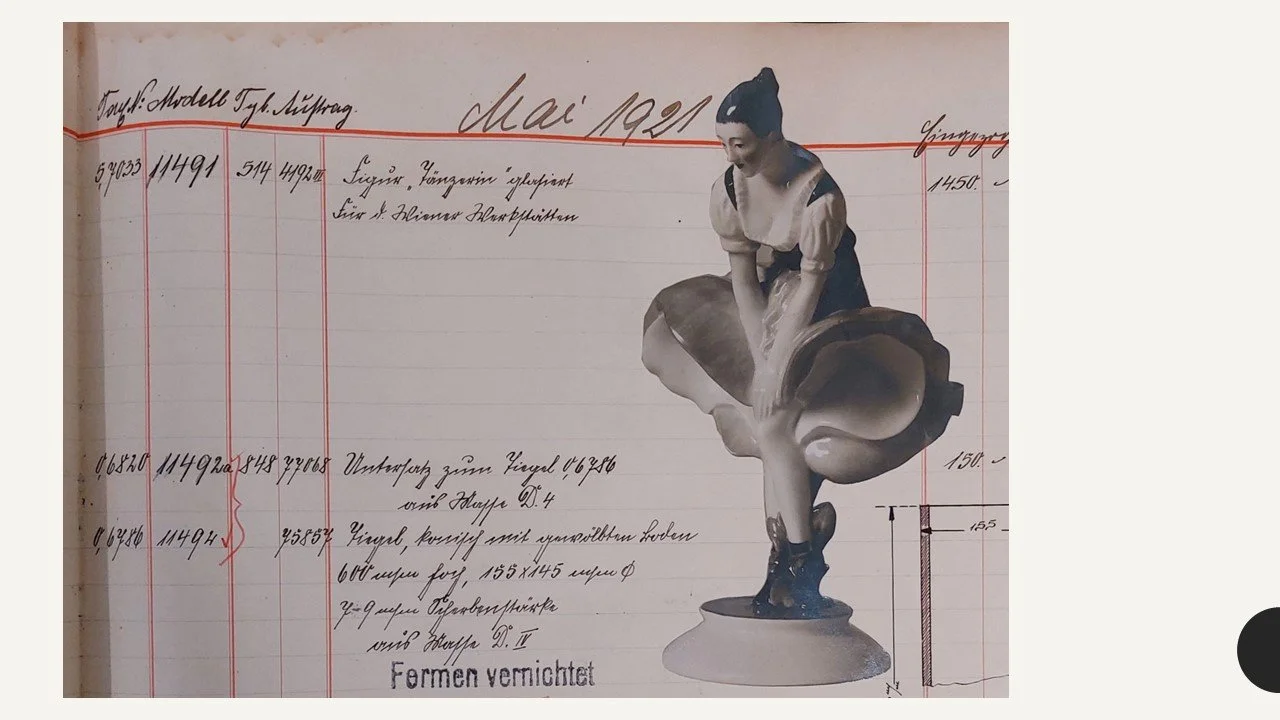 Modell Tgb. Auftrag.
Mai 1921
11491 514 4192III Figur „Tänzerin“ glasiert 1450.
Für d. Wiener Werkstätten
0,6820 11492a 848 77068 Untersatz zum Tiegel 0,6786 150.
aus Masse D. 4
0,6786 11494 75857 Tiegel, konisch mit gewölbten Boden
155
600 m/m hoch, 155 x 145 m/m Ø
7-9 m/m Scherbenstärke
aus Masse D. IV
Formen vernichtet